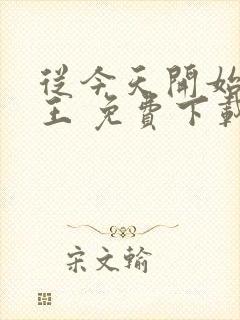 從今天開始
王 免費下載
宋文輸